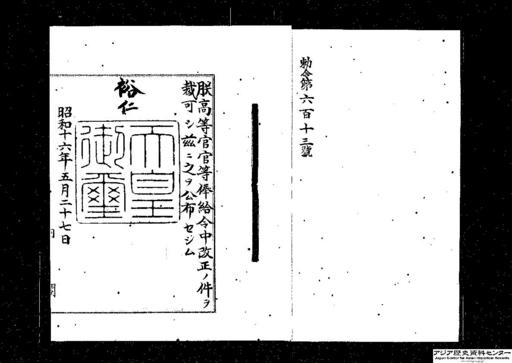 勅令第六百十三號
朕高等官官等俸給令中改正ノ件ヲ
裁可シ茲ニ之ヲ公布セシム
裕仁
天皇
御璽
昭和十六年五月二十七日
アジア歴史資料センター
Japan Center for Asian Historical Records